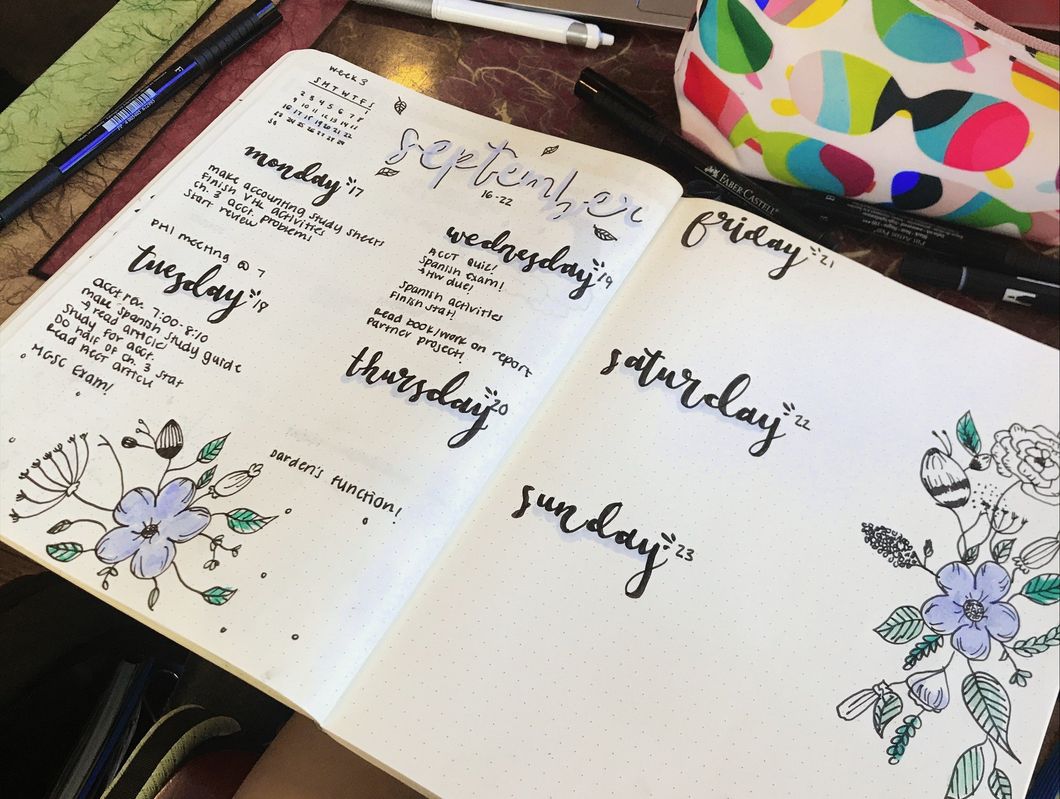 week 3
S M T W T F S
2 3 4 5 6 7 8
9 10 11 12 13 14 15
16 17 18 19 20 21 22
23 24 25 26 27 28 29
30
september
16-22
monday 17
make accounting study sheets
Finish VHL activities
Ch. 3 acct. problems
Start review
PHI meeting @ 7
tuesday 18
acct rev. 7:00-8:10
make spanish study guide
→ read article
Study for acct.
DO half of ch. 3 stat
Read Acct article
MGSC Exam!
wednesday 19
ACCT QUIZ!
Spanish Exam!
→ HW due!
Spanish activities
Finish Stat!
Read book/work on report
Partner project!
thursday 20
Darden's Function!
friday 21
saturday 22
sunday 23
FABER-CASTELL
Pitt Artist Pen